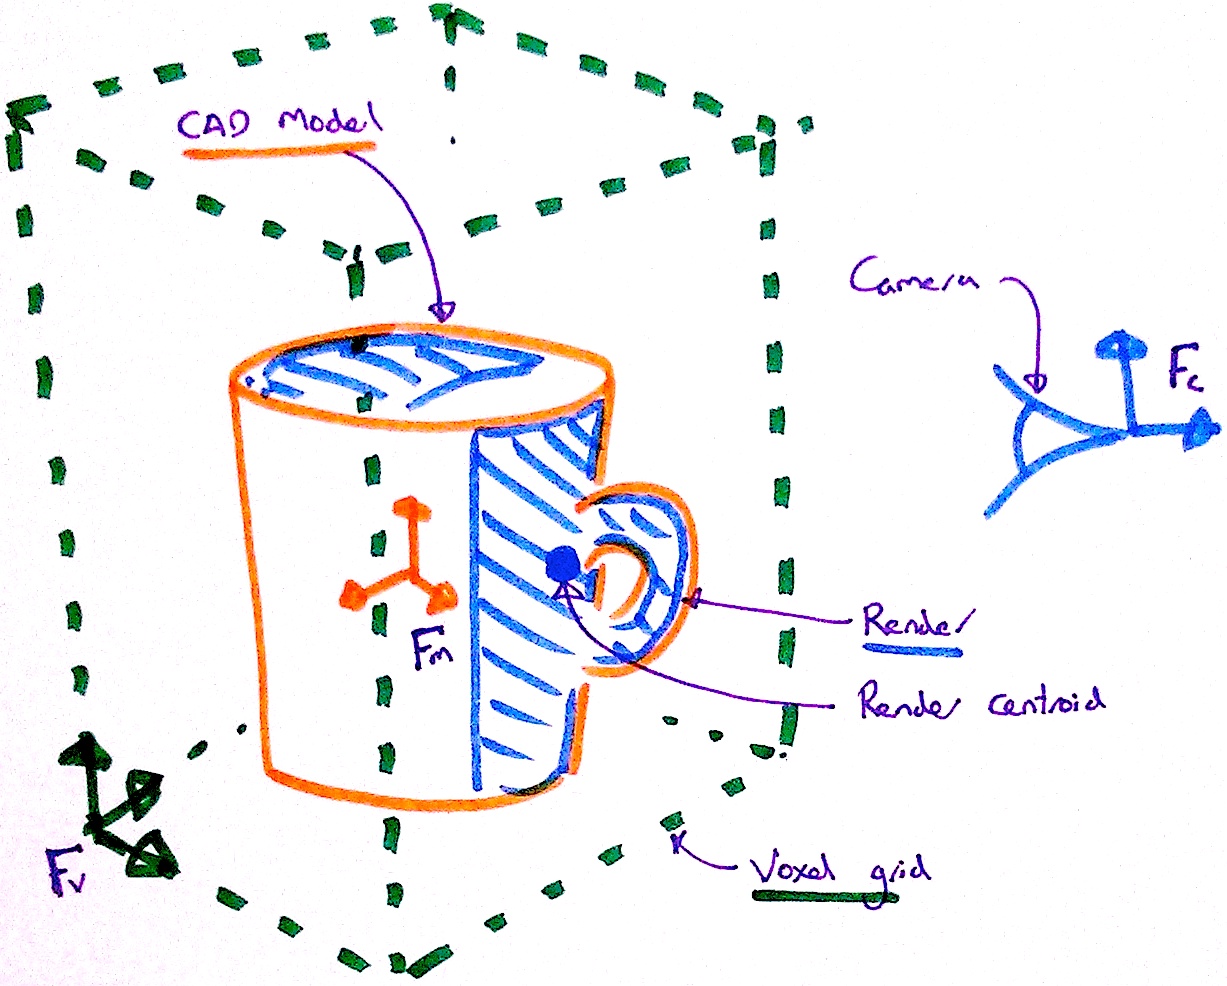 CAD Model
Camera
Fc
Fm
Render
Render centroid
Voxel grid
Fv